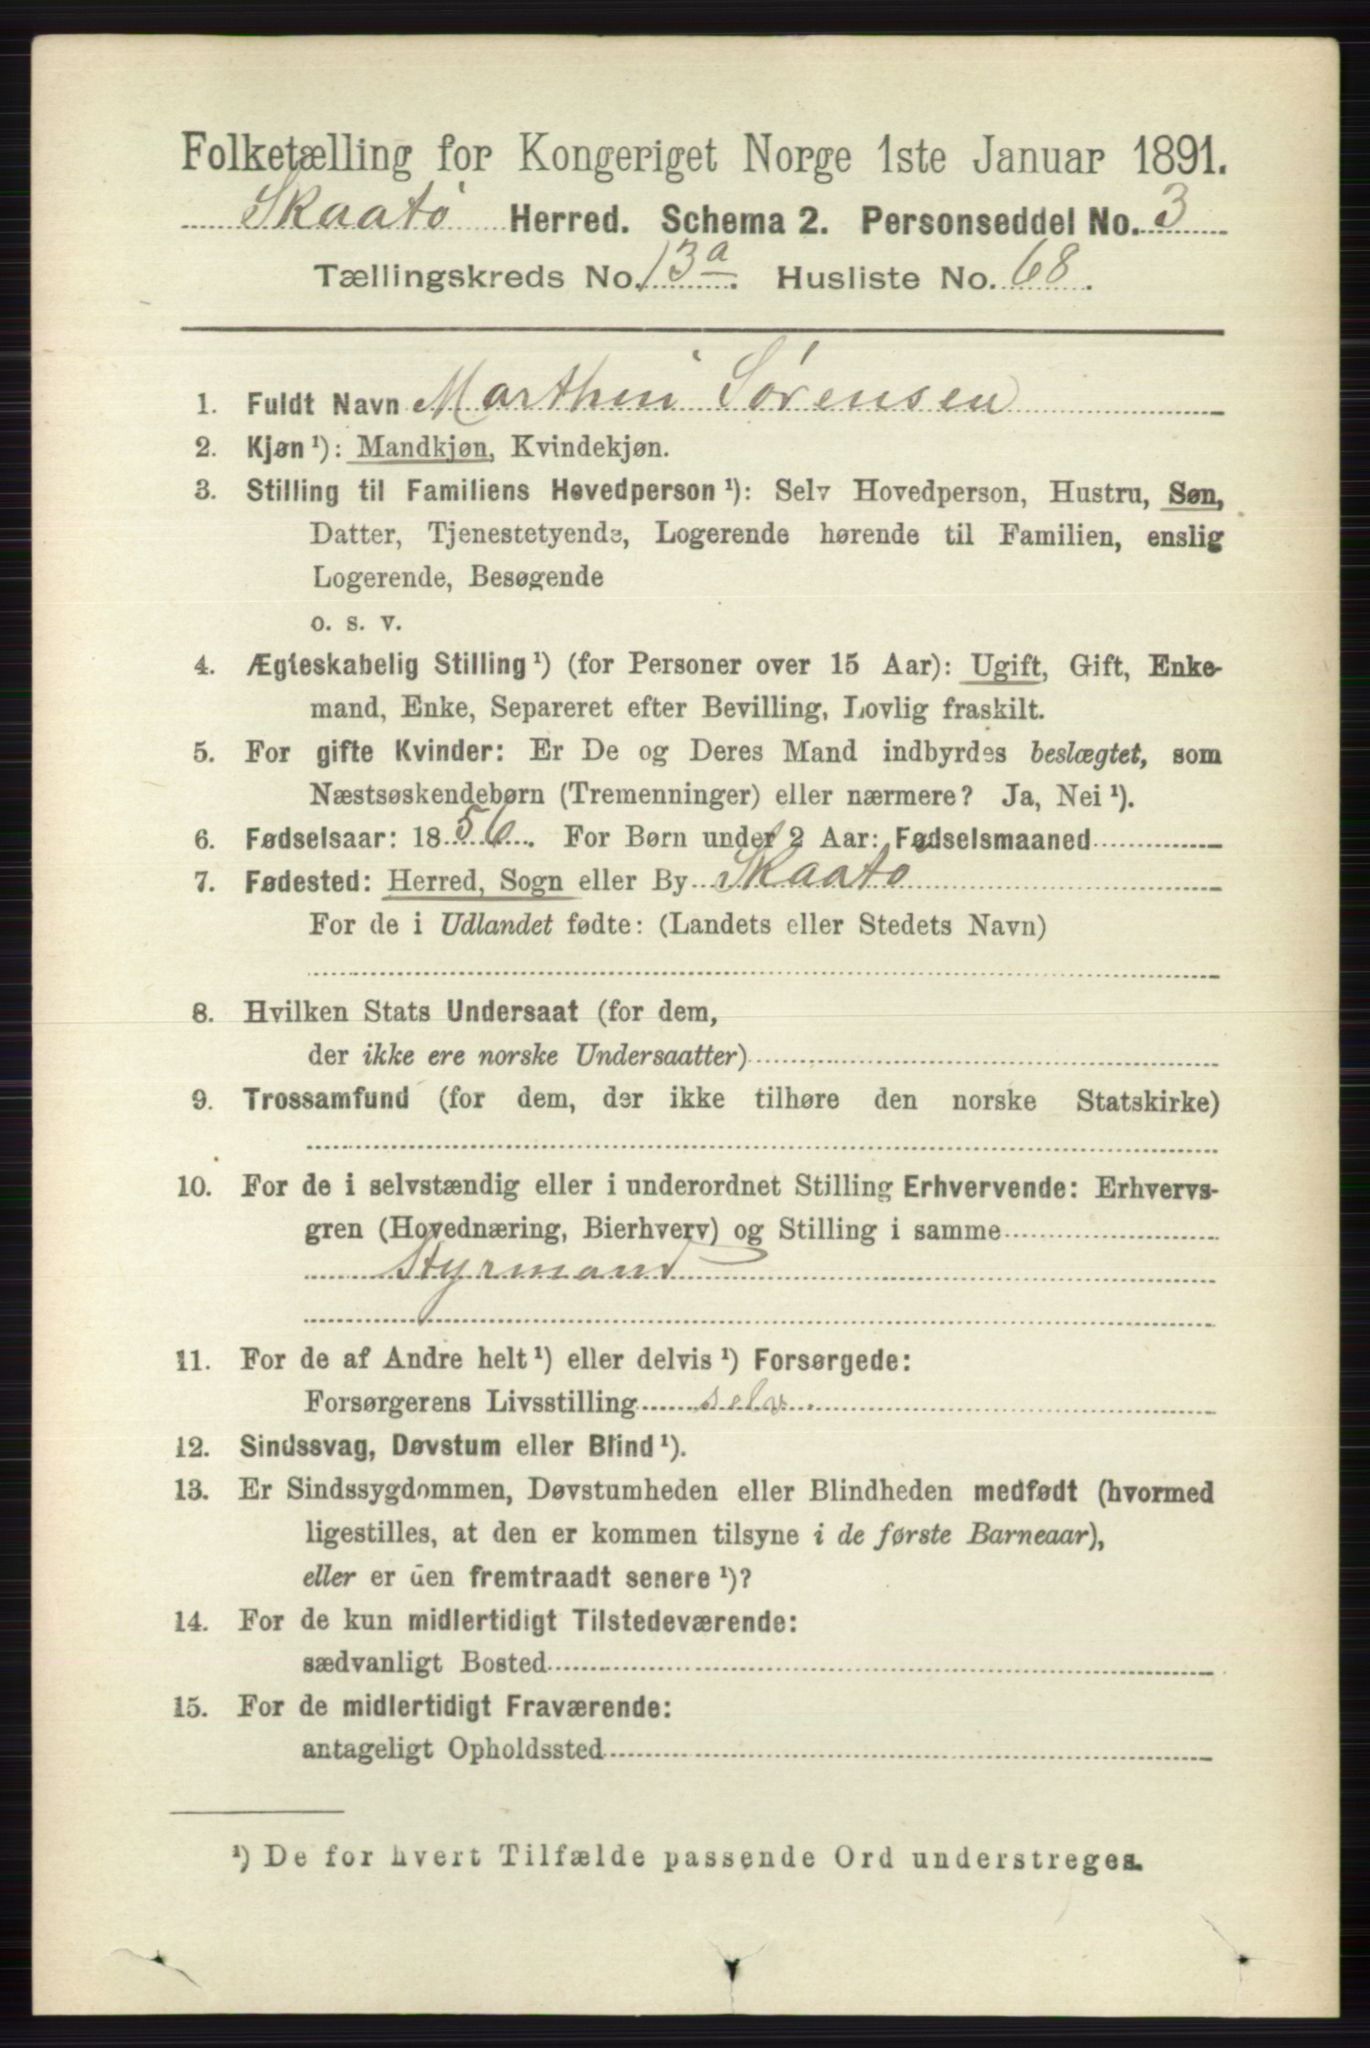 Folketælling for Kongeriget Norge 1ste Januar 1891.
Skaatø Herred. Schema 2. Personseddel No. 3
Tællingskreds No. 13a. Husliste No. 68.
1. Fuldt Navn Marthin Sørensen
2. Kjøn ¹): Mandkjøn, Kvindekjøn.
3. Stilling til Familiens Hovedperson ¹): Selv Hovedperson, Hustru, Søn,
Datter, Tjenestetyende, Logerende hørende til Familien, enslig
Logerende, Besøgende
o. s. v.
4. Ægteskabelig Stilling ¹) (for Personer over 15 Aar): Ugift, Gift, Enke-
mand, Enke, Separeret efter Bevilling, Lovlig fraskilt.
5. For gifte Kvinder: Er De og Deres Mand indbyrdes beslægtet, som
Næstsøskendebørn (Tremenninger) eller nærmere? Ja, Nei ¹).
6. Fødselsaar: 1856. For Børn under 2 Aar: Fødselsmaaned
7. Fødested: Herred, Sogn eller By Skaatø
For de i Udlandet fødte: (Landets eller Stedets Navn)
8. Hvilken Stats Undersaat (for dem,
der ikke ere norske Undersaatter)
9. Trossamfund (for dem, der ikke tilhøre den norske Statskirke)
10. For de i selvstændig eller i underordnet Stilling Erhvervende: Erhvervs-
gren (Hovednæring, Bierhverv) og Stilling i samme
Styrmand
11. For de af Andre helt ¹) eller delvis ¹) Forsørgede:
Forsørgerens Livsstilling selv.
12. Sindssvag, Døvstum eller Blind ¹).
13. Er Sindssygdommen, Døvstumheden eller Blindheden medfødt (hvormed
ligestilles, at den er kommen tilsyne i de første Barneaar),
eller er den fremtraadt senere ¹)?
14. For de kun midlertidigt Tilstedeværende:
sædvanligt Bosted
15. For de midlertidigt Fraværende:
antageligt Opholdssted
¹) De for hvert Tilfælde passende Ord understreges.